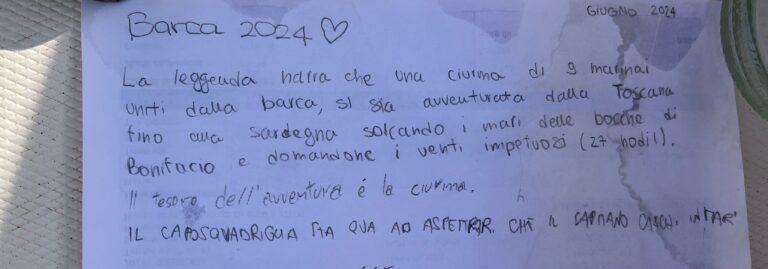 Barca 2024 ♡
GIUGNO 2024
La leggenda narra che una ciurma di 9 marinai
uniti dalla barca, si sia avventurata dalla Toscana
fino alla Sardegna solcando i mari delle bocche di
Bonifacio e domandone i venti impetuozi (27 nodi!).
Il tesoro dell'avventura é la ciurma.
IL CAPOSQUADRIGLIA STA QUA AD ASPETTAR, CHE IL CAPITANO CASCHI IN MAR